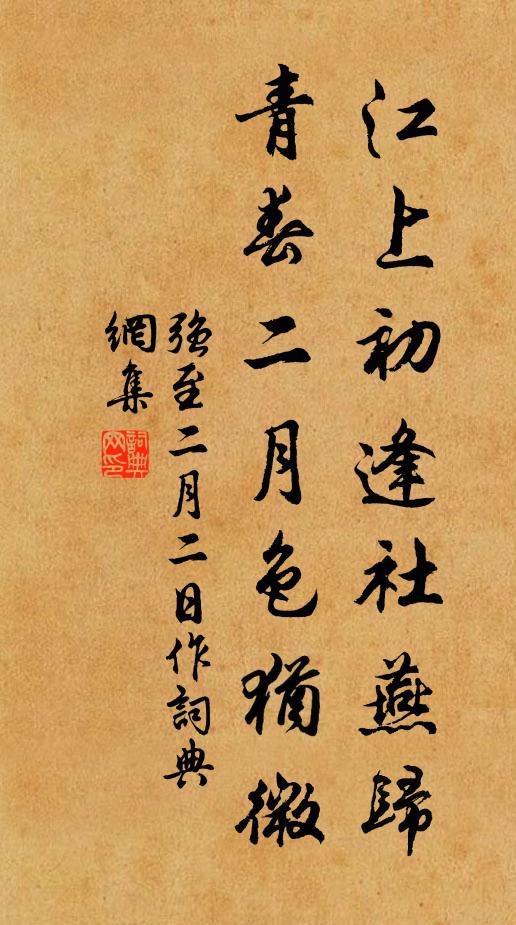 江上初逢社燕歸
青春二月色猶微
強至二月二日作詞典
網集
詞典
网印